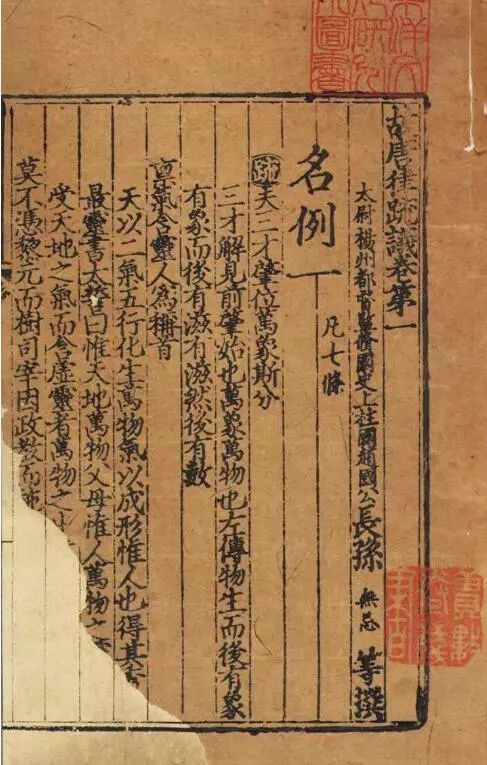 故唐律疏議卷第一
太尉揚州都督監修國史上柱國趙國公長孫無忌等撰
名例一 凡七條
疏夫三才肇位萬象斯分
三才解見前肇始也萬象萬物也左傳物生而後有象
有象而後有滋有滋然後有數
稟氣含靈人為稱首
天以二氣五行化生萬物氣以成形惟人也得其秀
最靈書太誓曰惟天地萬物父母惟人萬物之
受天地之氣而含虛靈者萬物之
莫不憑黎元而樹司宰因政教而施